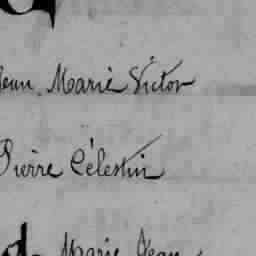 Jean Marie Victor
Pierre Célestin
Marie Jean